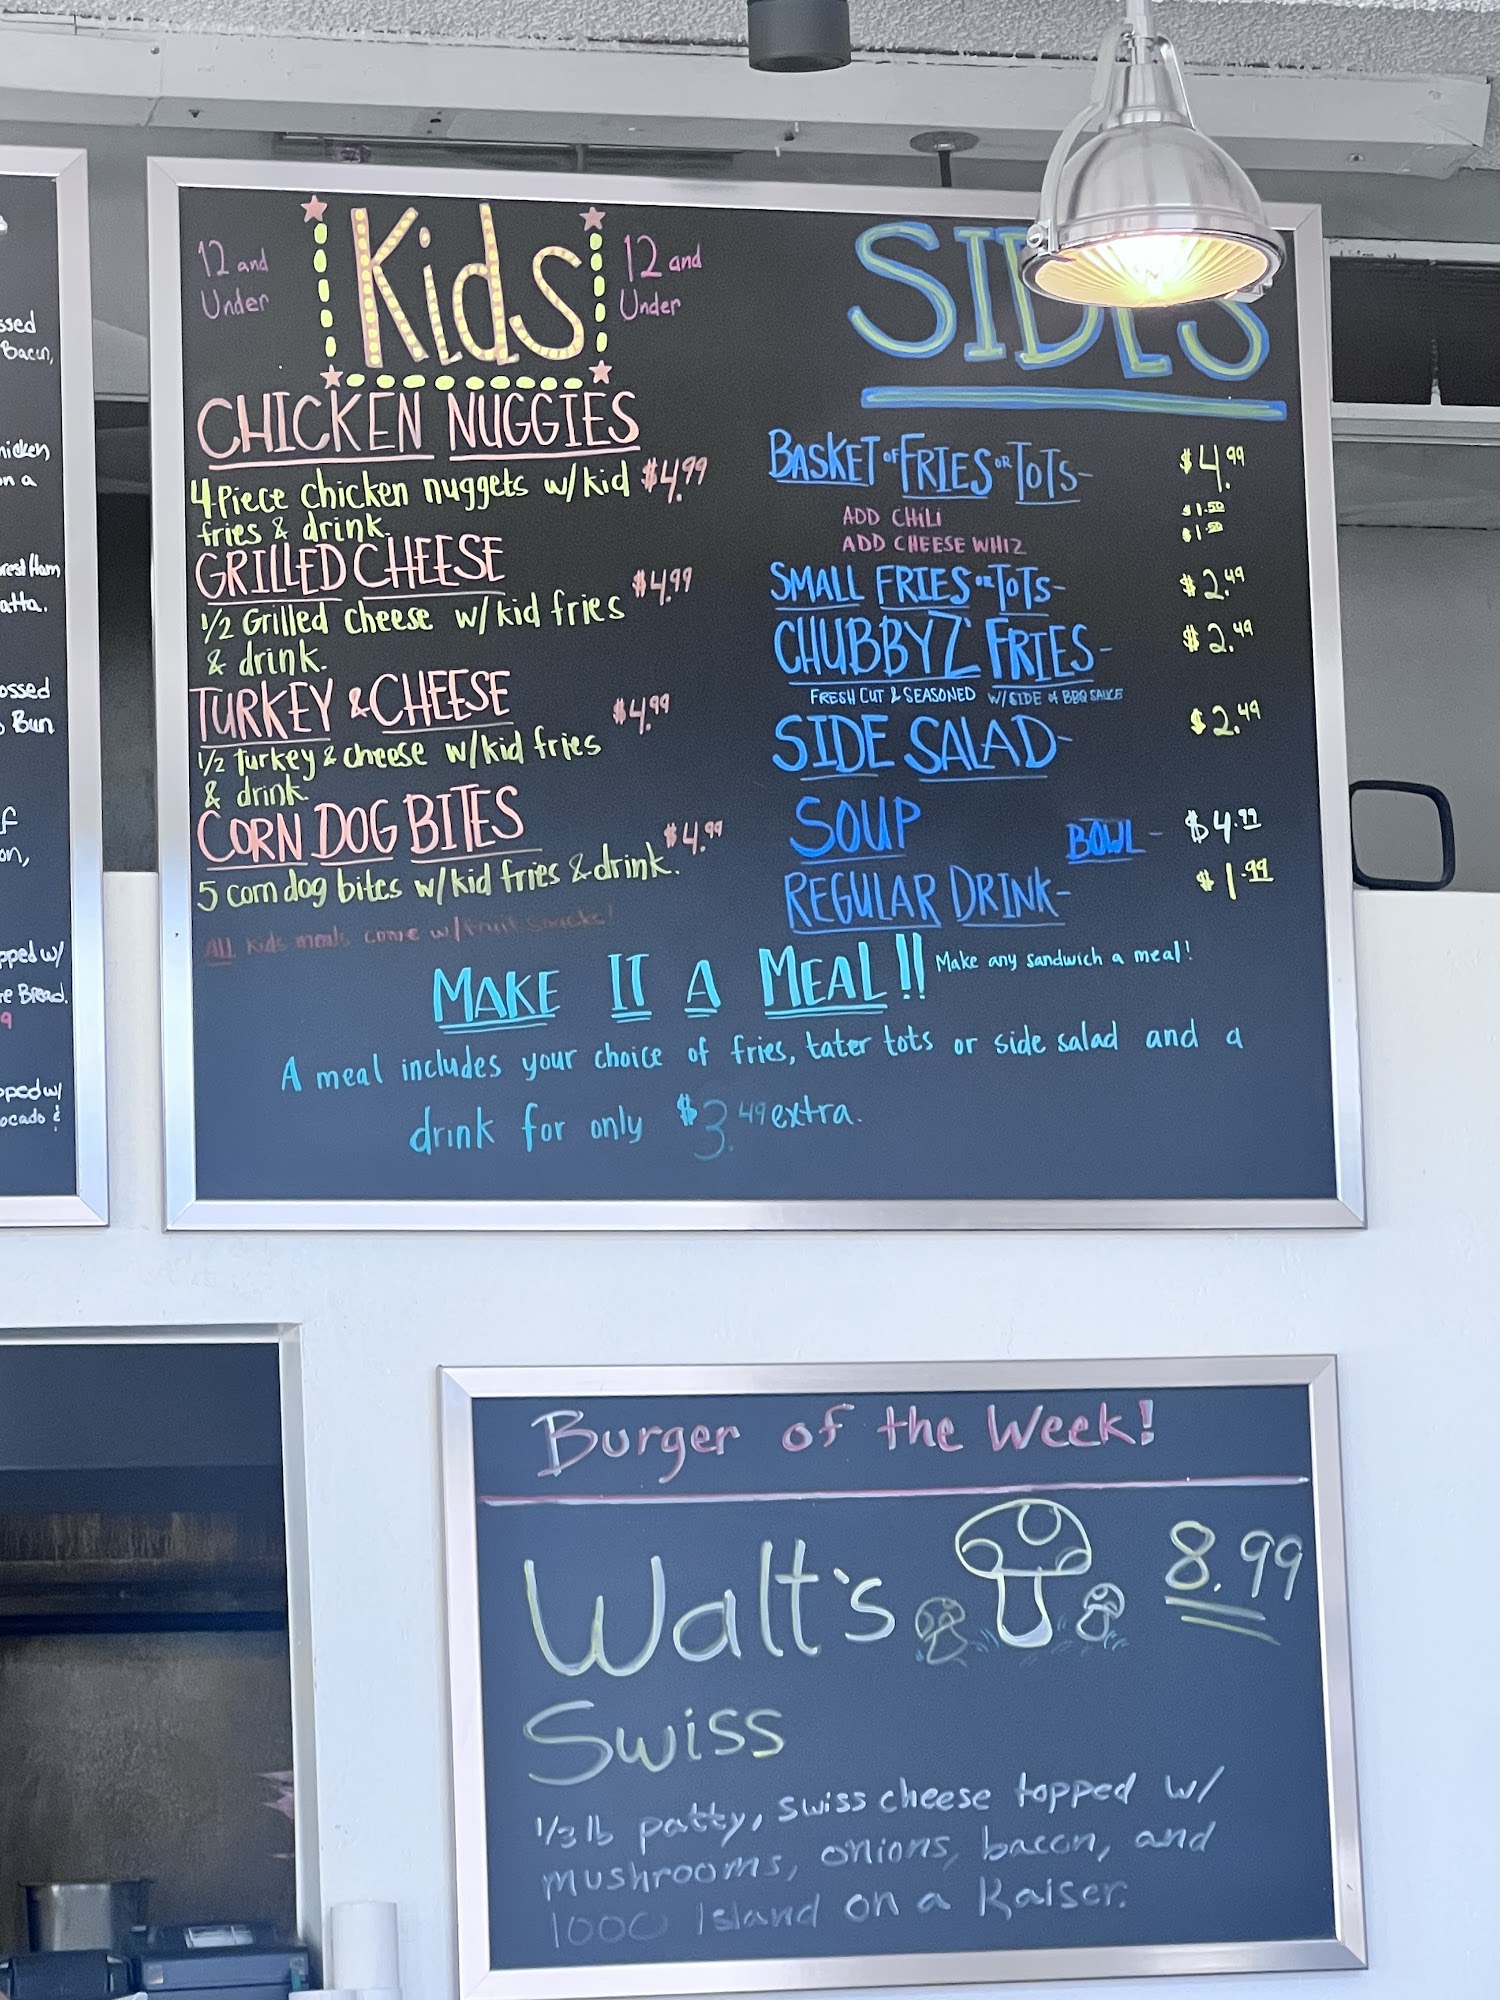 ssed
Bacon,
hicken
on a
rest Ham
atta.
ossed
Bun
f
on,
pped w/
re Bread.
9
pped w/
ocado &
12 and
Under
Kids
12 and
Under
CHICKEN NUGGIES
4 Piece chicken nuggets w/ kid $4.99
fries & drink.
GRILLED CHEESE
1/2 Grilled cheese w/ kid fries $4.99
& drink.
TURKEY & CHEESE
1/2 Turkey & cheese w/ kid fries $4.99
& drink.
CORN DOG BITES
5 corn dog bites w/ kid fries & drink. $4.99
All kids meals come w/ fruit snacks!
SIDES
BASKET OF FRIES OR TOTS- $4.99
ADD CHILI $1.50
ADD CHEESE WHIZ $1.50
SMALL FRIES OR TOTS- $2.49
CHUBBYZ' FRIES- $2.49
FRESH CUT & SEASONED W/ SIDE of BBQ SAUCE
SIDE SALAD- $2.49
SOUP BOWL- $4.99
REGULAR DRINK- $1.99
MAKE IT A MEAL!! Make any sandwich a meal!
A meal includes your choice of fries, tater tots or side salad and a
drink for only $3.49 extra.
Burger of the Week!
Walt's 8.99
Swiss
1/3 lb patty, swiss cheese topped w/
mushrooms, onions, bacon, and
1000 Island on a Kaiser.